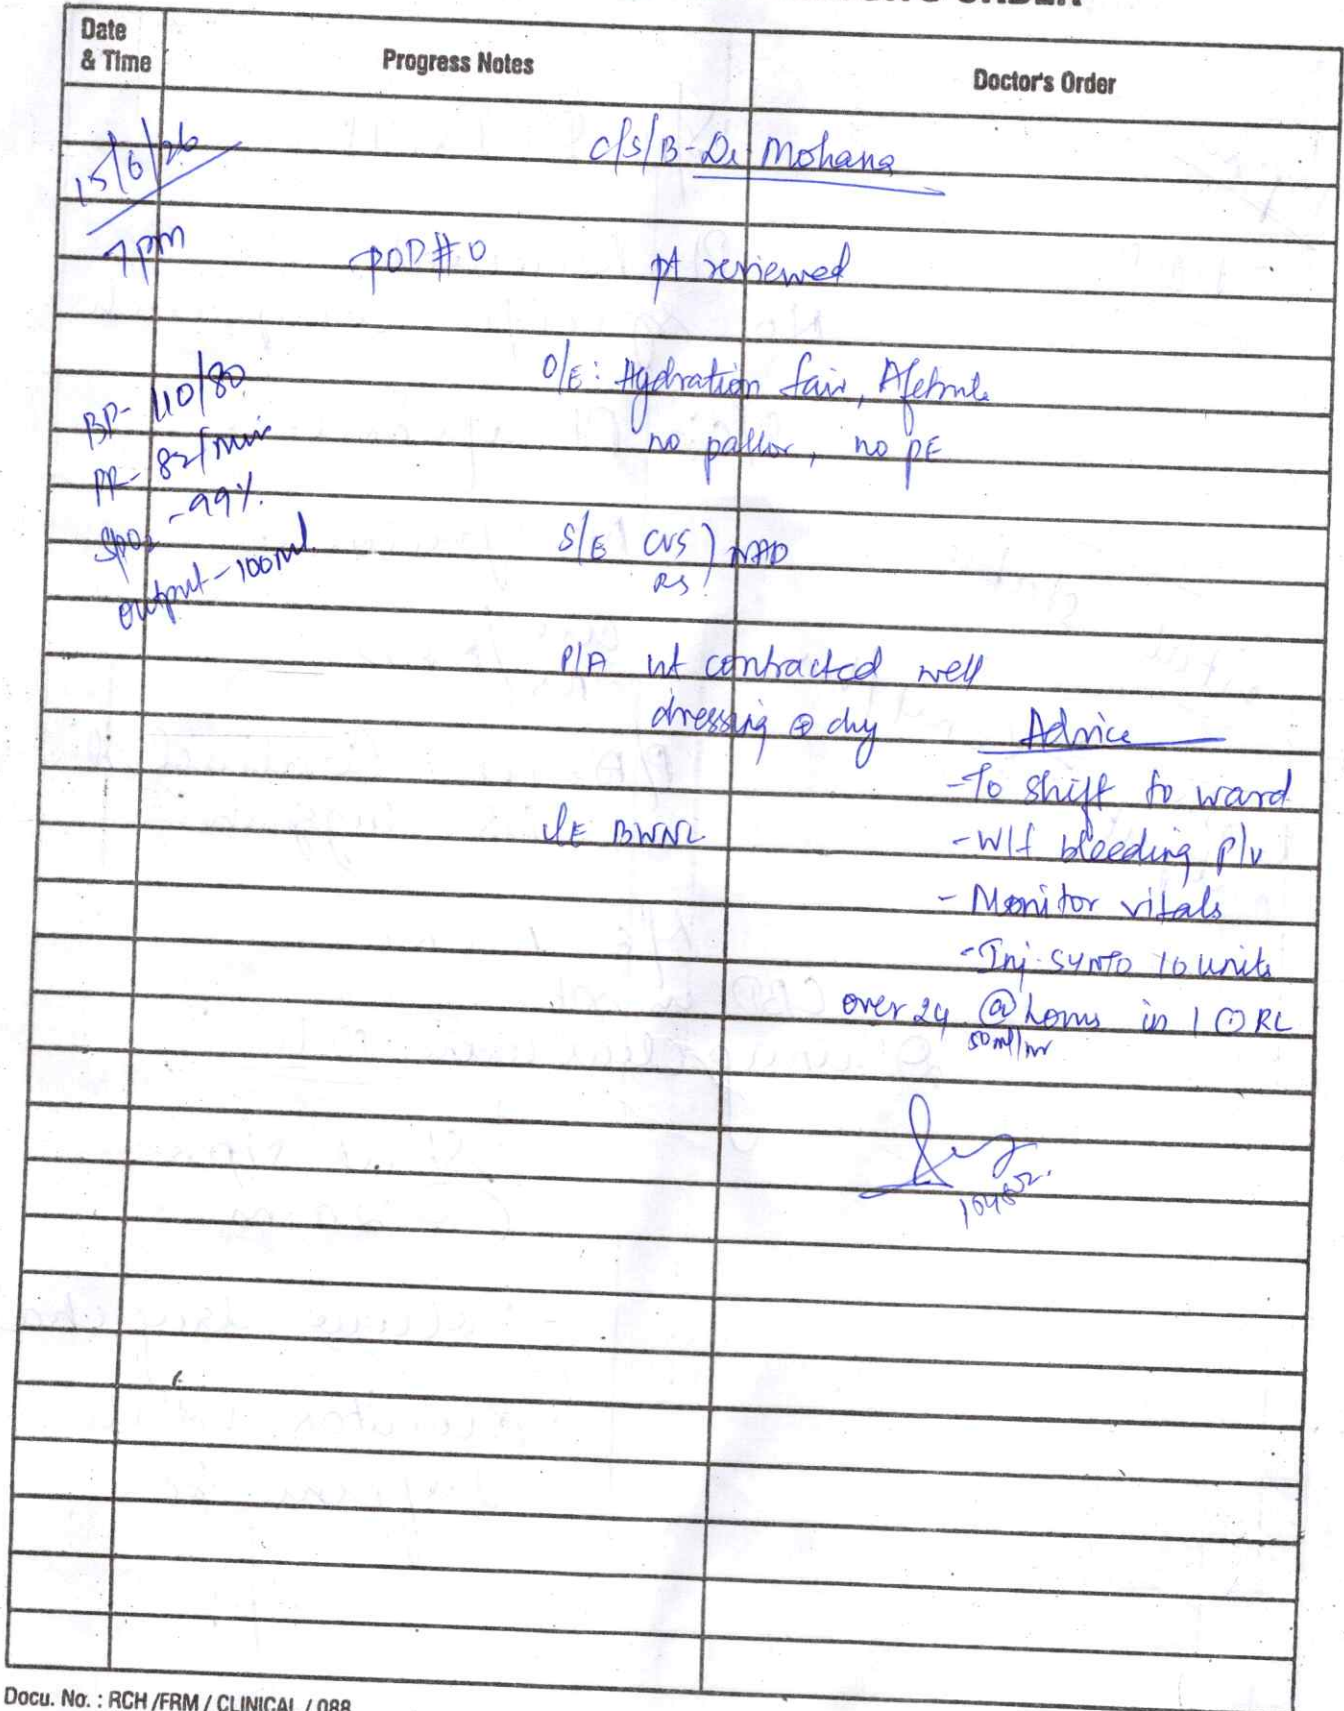 Date
& Time
Progress Notes
Doctor's Order
15/6/26
7pm
C/S/B - Dr Mohana
POD # 0
pt reviewed
BP- 110/80
PR- 82/min
SpO2 - 99%.
output - 100ml.
O/E: Hydration fair, Afebrile
no pallor, no PE
S/E CVS ) NAD
RS
P/A ut contracted well
dressing dry
L/E BWNL
Advice
- To shift to ward
- W/f bleeding P/v
- Monitor vitals
- Inj. SYNTO 10 units
over 24 hours in 1 RL
@ 50ml/hr
Docu. No. : RCH /FRM / CLINICAL / 088